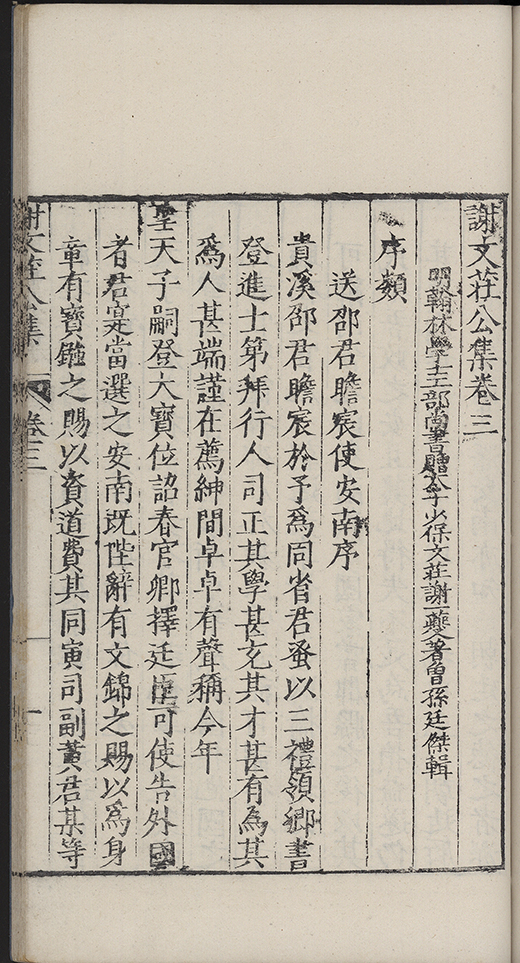 謝文莊公集卷三
閣翰林學士工部尚書贈太子少保文莊謝一夔著曾孫廷傑輯
序類
送邵君瞻宸使安南序
貴溪邵君瞻宸於予為同省君蚤以三禮領鄉書
登進士第拜行人司正其學甚充其才甚有為其
為人甚端謹在薦紳間卓卓有聲稱今年
聖天子嗣登大寶位詔春官卿擇廷臣可使告外國
者君寔當選之安南既陛辭有文錦之賜以為身
章有寶鏹之賜以資道費其同寅司副黃君某等
謝文莊公集
卷三
一